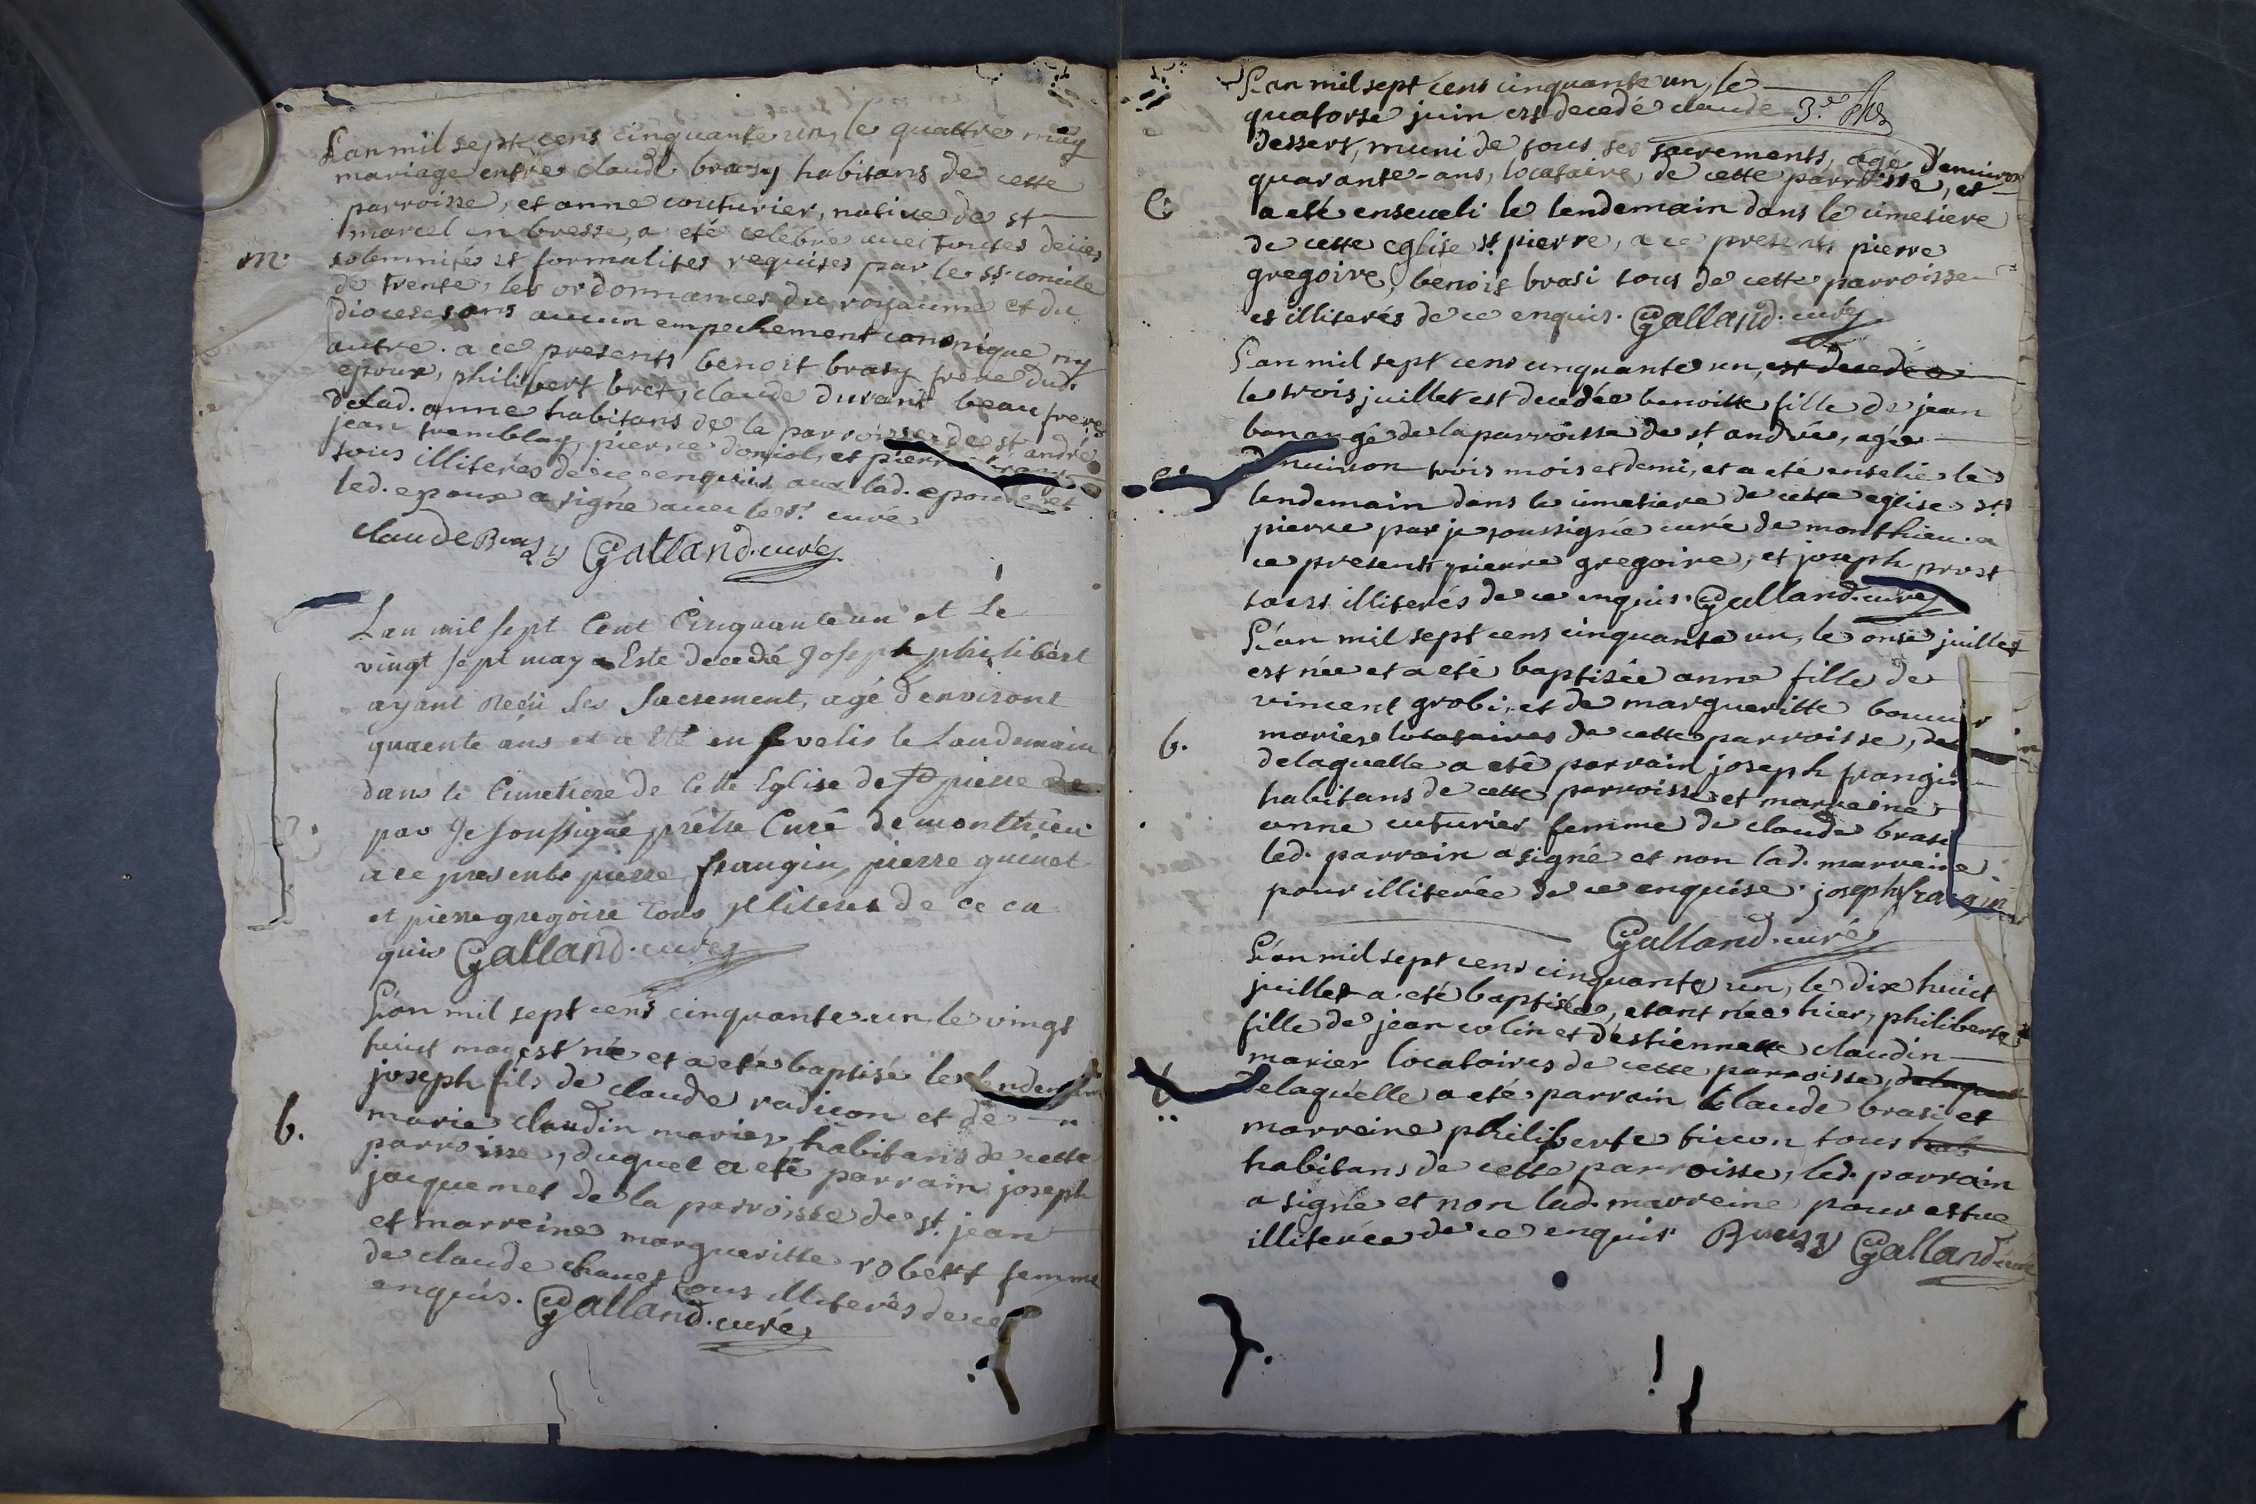 L'an mil sept cens cinquante un, le quattre may
mariage entre claude brasy habitans de cette
parroisse, et anne couturier, native de st
marcel en bresse, a eté celebré avec toutes
m. solemnités et formalites requises par le st concile
de trente, les ordonnances du royaume et du
diocese sans aucun empechement canonique ny
autre. a ce presents benoit brasy frere dud.
epoux, philibert bret, claude durant beau frere
delad. anne habitans de la parroisse de st andré
jean tremblay, pierre doncol, et pierre
tous illiterés de ce enquis aux lad. epouse et
led. epoux a signé avec le sr. curé
claude Brasy Galland. curé
Lan mil sept Cent Cinquante un et Le
vingt sept may a Este decedé Joseph philibert
ayant reçu ses Sacrement, agé d'environt
quaente ans et a été ensevelis le Landemain
dans le Cimetiere de Cette Eglise de St pierre de
par Je soussigné prêtre Curé de monthieu
a ce presents pierre frangin, pierre guinet
et pierre gregoire Tous Jlliteres de ce en
quis Galland. curé
L'an mil sept cens cinquante un le vingt
huict may est née et a eté baptisé le lendemain
joseph fils de claude radicon et de
b. marie claudin mariez, habitans de cette
parroisse, duquel a eté parrain joseph
jacquemet de la parroisse de st. jean
et marreine margueritte robert femme
de claude chanet tous illiterés de ce
enquis. Galland. curé
L'an mil sept cens cinquante un, le
quatorse juin est decedé claude 3e
dessert, muni de tous ses sacrements, agé d'environ
quarante-ans, locataire, de cette parroisse, et
a eté enseveli le lendemain dans le cimetiere
de cette eglise st. pierre, a ce presents pierre
gregoire, benois brasi tous de cette parroisse
et illiterés de ce enquis. Galland. curé
L'an mil sept cens cinquante un, est decedé
le trois juillet est decedée benoitte fille de jean
de la parroisse de st andré, agée
d'environ trois mois et demi, et a eté enselie le
lendemain dans le cimetiere de cette eglise st
pierre par je soussigné curé de monthieu. a
ce presents pierre gregoire, et joseph prost
tous illiterés de ce enquis. Galland. curé
L'an mil sept cens cinquante un, le onse juillet
est née et a eté baptisée anne fille de
vincent grobi, et de margueritte
b. mariez locataires de cette parroisse, de
delaquelle a eté parrain joseph frangin
habitans de cette parroisse et marreine
anne cuturier femme de claude brasi
led. parrain a signé et non lad. marreine
pour illiterée de ce enquise. joseph frangin
Galland. curé
L'an mil sept cens cinquante un, le dix huict
juillet a eté baptisée, etant née hier, philiberte
fille de jean colin et d'estiennette claudin
marier locataires de cette parroisse,
delaquelle a eté parrain Claude brasi et
marreine philiberte ticon tous hab
habitans de cette parroisse, led. parrain
a signé et non lad. marreine pour estre
illiterée de ce enquis. Brasy Galland curé